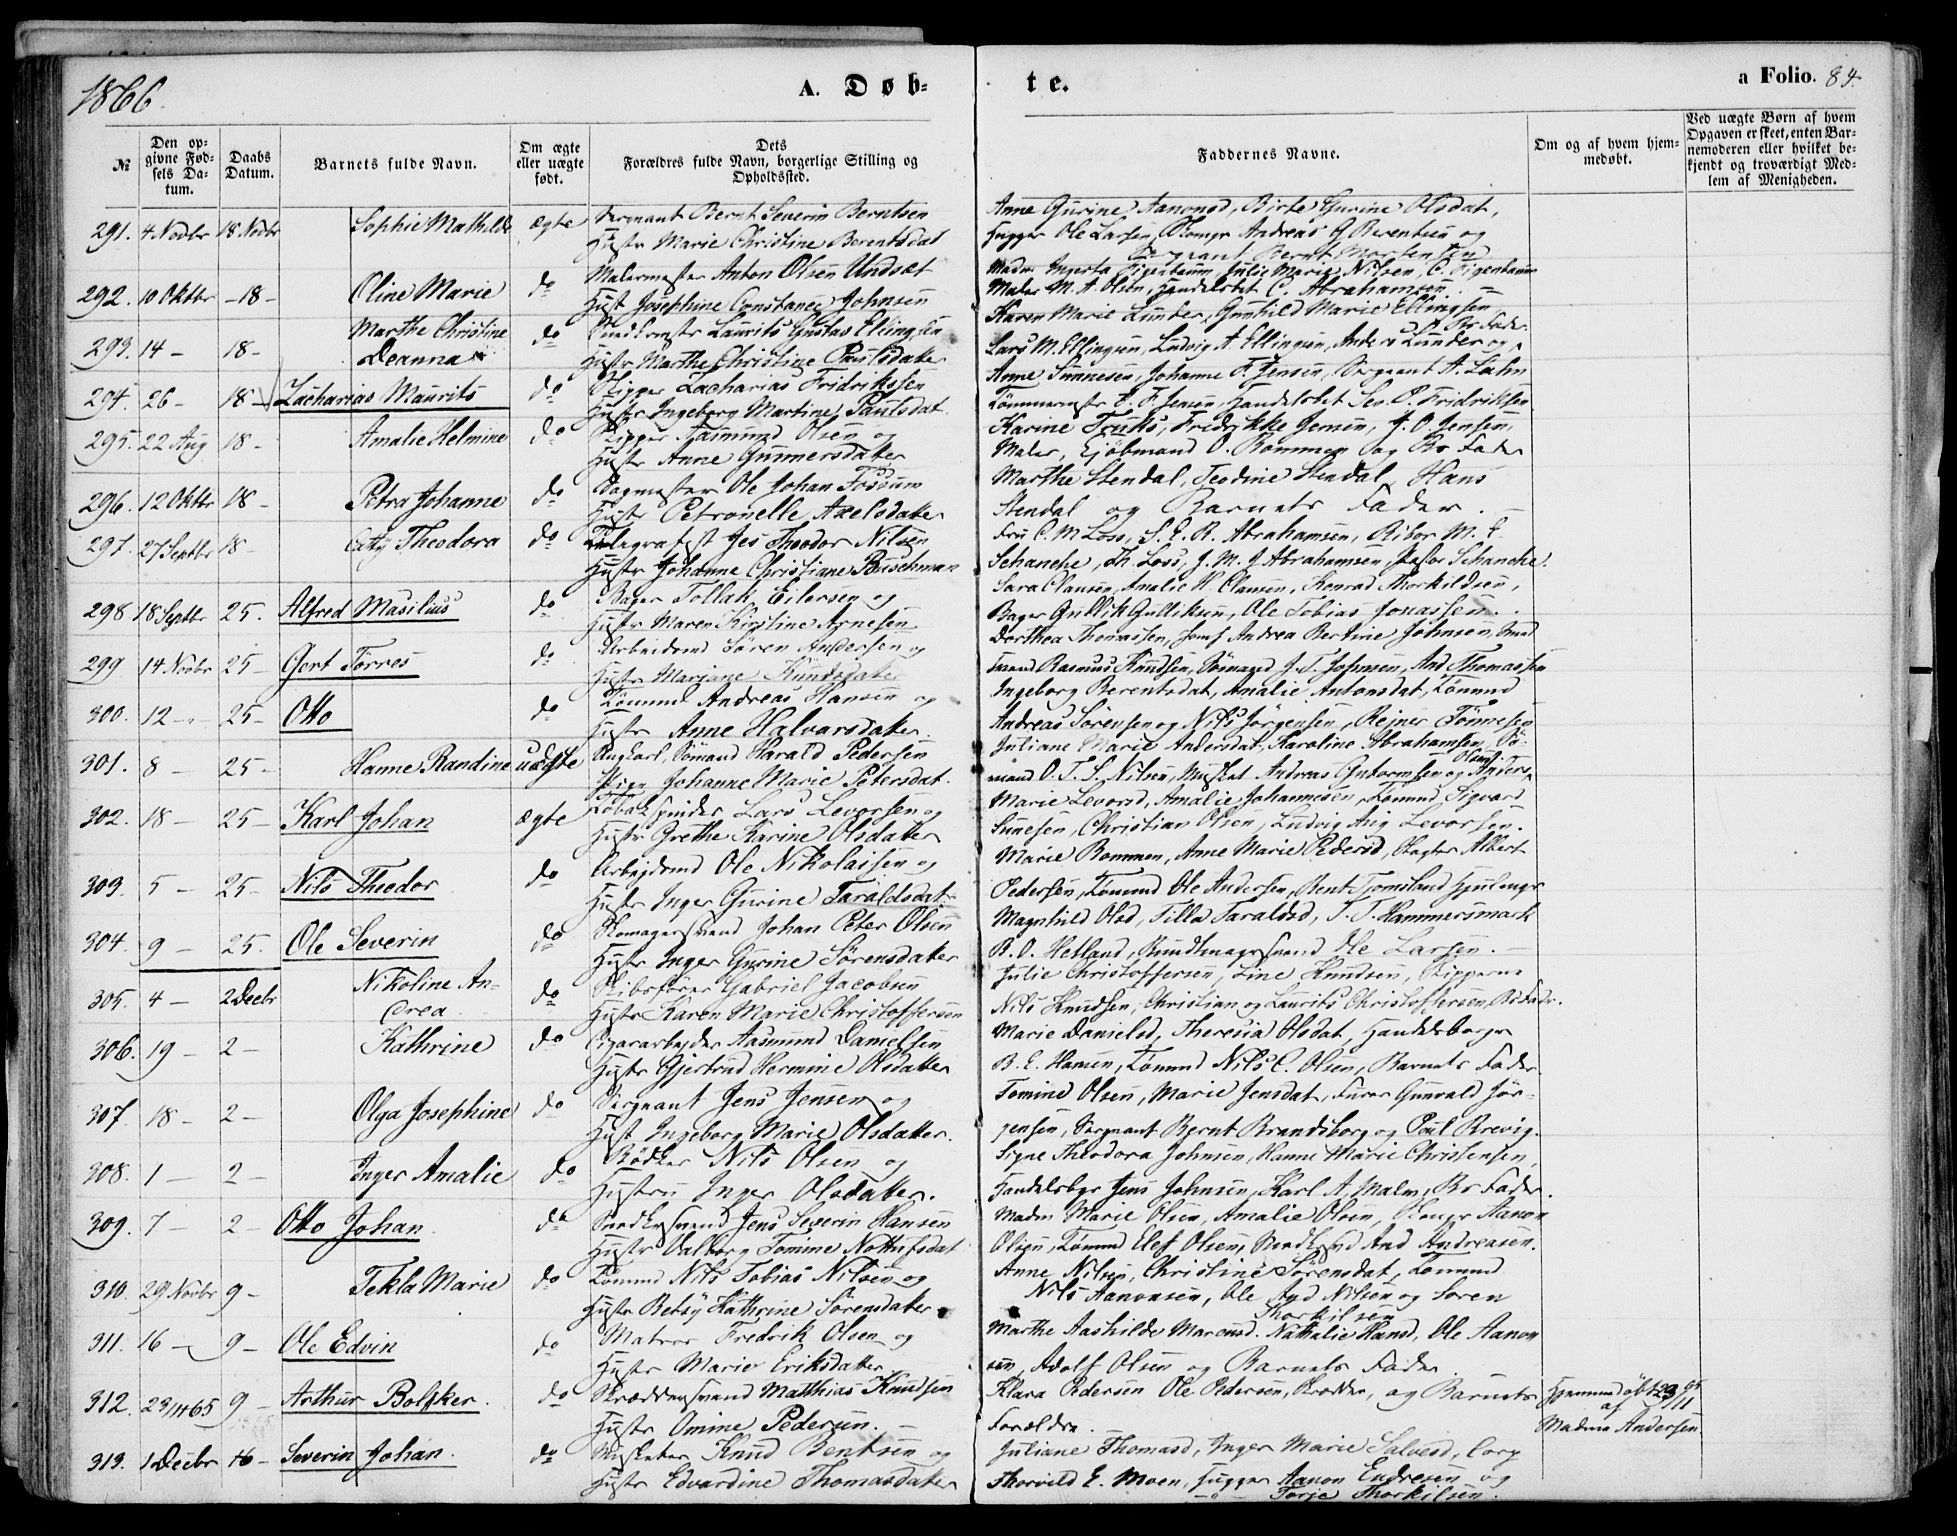 1866.
A. Døb-
te.
a Folio. 84.
№
Den op-
givne Fød-
sels Da-
tum.
Daabs
Datum.
Barnets fulde Navn.
Om ægte
eller uægte
født.
Dets
Forældres fulde Navn, borgerlige Stilling og
Opholdssted.
Faddernes Navne.
Om og af hvem hjem-
medøbt.
Ved uægte Børn af hvem
Opgaven er skeet, enten Bar-
nemoderen eller hvilket be-
kjendt og troværdigt Med-
lem af Menigheden.
291. 4 Novbr 18 Novbr Sophie Mathilde ægte Sergeant Bernt Severin Berntsen
Hustr Marie Christine Berentsdat
Anne Gurine Aanonsd, Birte Gurine Olsdat,
Hugger Ole Larsen, Andreas G. Berentsen og
Sergeant Bernt Mortensen
292. 10 Oktbr -18- Oline Marie do Malermester Anton Olsen Undset
Hust Josephine Constance Johnsen
Madm Julie Marie Nilsen,
Maler M. A. Olsen, Handelsbet C. Abrahamsen
293. 14 - 18- Marthe Christine do Laurits Gustav Ellingsen
Deanna
Hustr Marthe Christine Paulsdatter
Karen Marie Lunder, Gunhild Marie Ellingsen
Lars M. Ellingsen, Ludvig A Ellingsen, Anders Lunder og Bs Fader
294. 26 - 18- Zacharias Maurits do Skipper Zacharias Fridriksen
Hustr Ingeborg Martine Paulsdat
Anne Sunnesen, Johanne F. Jensen, Sergeant A. Lahn
Tømmermstr E. F. Jensen, Handelsbet Sev. P. Fridriksen
295. 22 Aug 18- Amalie Helmine do Skipper Aasmund Olsen og
Hustr Anne Gunnersdatter
Karine Fridrikke Jensen, J. O. Jensen,
Maler, Kjøbmand O. Rommen og Bs Fader
296. 12 Oktbr 18- Petra Johanne do Bagmester Ole Johan Fossum
Hustr Petronelle Axelsdatter
Marthe Stendal, Teodine Stendal, Hans
Stendal og Barnets Fader.
297. 27 Septbr 18- Theodora do Telegrafist Jes Theodor Nilsen
Hustr Johanne Christiane Buschman
Fru C. M Loss, S. E. R. Abrahamsen, M. E.
Schanche, Th. Loss, J. M. G Abrahamsen, Schanche.
298 18 Septbr 25. Alfred Masilius do Bager Tollak Eilersen og
Hustr Maren Kirstine Arnesen
Sara Clausen, Amalie H. Clausen, Konrad Thorkildsen,
Bager Gullik Gulliksen, Ole Tobias Jonassen.
299 14 Novbr 25- Gert Torres do Arbeidsmd Søren Andersen og
Hustr Mariane Knudsdatter
Dorthea Thomassen, Jomf Andrea Bertine Johnsen,
Rasmus Knudsen, J. T. Johnsen, And Thomassen
300. 12 - 25- Otto do Tømmd Andreas Hansen og
Hustr Anne Halvarsdatter.
Ingeborg Berentsdat, Amalie Antonsdat, Tømmd
Andreas Sørensen og Nils Jørgensen, Rejner Tønnesen
301. 8 - 25- Hanne Randine uægte Ungkarl, Sømand Harald Pedersen
Pige Johanne Marie Petersdat.
Juliane Marie Andersdat, Karoline Abrahamsen, Sø-
mand O. T. S. Nilsen, Musket Andreas Guttormsen og
302. 18 - 25- Karl Johan ægte Tobakspinder Lars Levorsen og
Hustr Grethe Karine Olsdatter
Marie Levorsd, Amalie Johannesen, Tømmd Sigvard
Sunesen, Christian Olsen, Ludvig Aug Levorsen.
303. 5 - 25- Nils Theodor do Arbejdsmd Ole Nikolaisen og
Hustr Inger Gurine Taraldsdat
Marie Rommen, Anne Marie Pedersd, Slagter Albert
Pedersen, Tømmd Ole Andersen, Bent Tjomsland
304. 9 - 25. Ole Severin do Skomagersvend Johan Peter Olsen
Hustr Inger Gurine Sørensdatter
Magnhild Olsd, Tilla Taraldsd, T. T. Hammersmark
B. O. Hetland, Bundtmagersvend Ole Larsen.
305. 4 - 2 Decbr Nikoline An- do Skibsfører Gabriel Jacobsen
drea
Hustr Karen Marie Christoffersen
Julie Christoffersen, Line Knudsen, Skipperne
Nils Knudsen, Christian og Laurits Christoffersen, Bs Fader.
306. 19 - 2- Kathrine do Cigararbejder Aasmund Danielsen
Hustr Gjertrud Hermine Olsdatter
Marie Danielsd, Theresia Olsdat, Handelsborger
B. E. Hansen, Tømmd Nils C. Olsen, Barnets Fader.
307. 18 - 2- Olga Josephine do Sergeant Jens Jensen og
Hust Ingeborg Marie Olsdatter.
Tomine Olsen, Marie Jensdat, Furer Gunvald Jør-
gensen, Sergeant Bernt Brandsborg og Poul Brevig.
308. 1 - 2- Inger Amalie do Bødker Nils Olsen og
Hustru Inger Olsdatter.
Signe Theodora Johnsen, Hanne Marie Christensen,
Handelsbgr Jens Johnsen, Karl A. Malm, Bs Fader.
309. 7 - 2- Otto Johan do Snedkersvend Jens Severin Hansen
Hustr Valborg Tomine Nottufsdat
Madm Marie Olsen, Amalie Olsen, Aanon
Olsen, Tømmd Elef Olsen, Snedksvd And Andreasen.
310. 29 Novbr 9- Tekla Marie do Tømmd Nils Tobias Nilsen og
Hustr Betsy Kathrine Sørensdatter
Anne Nilsen, Christine Sørensdat, Tømmd
Nils Aanonsen, Ole And Nilsen og Søren
Thorkilsen
311. 16 - 9- Ole Edvin do Matros Fredrik Olsen og
Hustr Marie Eriksdatter.
Marthe Aashilde Marcusd. Nathalie Hansd, Ole Aanon
sen, Adolf Olsen og Barnets Fader
312. 23/11 65 9- Arthur Bolfker. do Skræddersvend Matthias Knudsen
Hustr Omine Pedersen.
Klara Pedersen Ole Pedersen, Skrædder, og Barnets
Forældre.
Hjemmedøbt 23/11 65
af
Madme Andersen
313. 1 Decbr 16- Severin Johan. do Musketer Knud Bentsen og
Hustr Edvardine Thomasdatter
Juliane Thomasd, Inger Marie Salvesd, Corp
Thorvild E. Moen, Hugger Aanon Endresen og
Torje Thorkilsen.